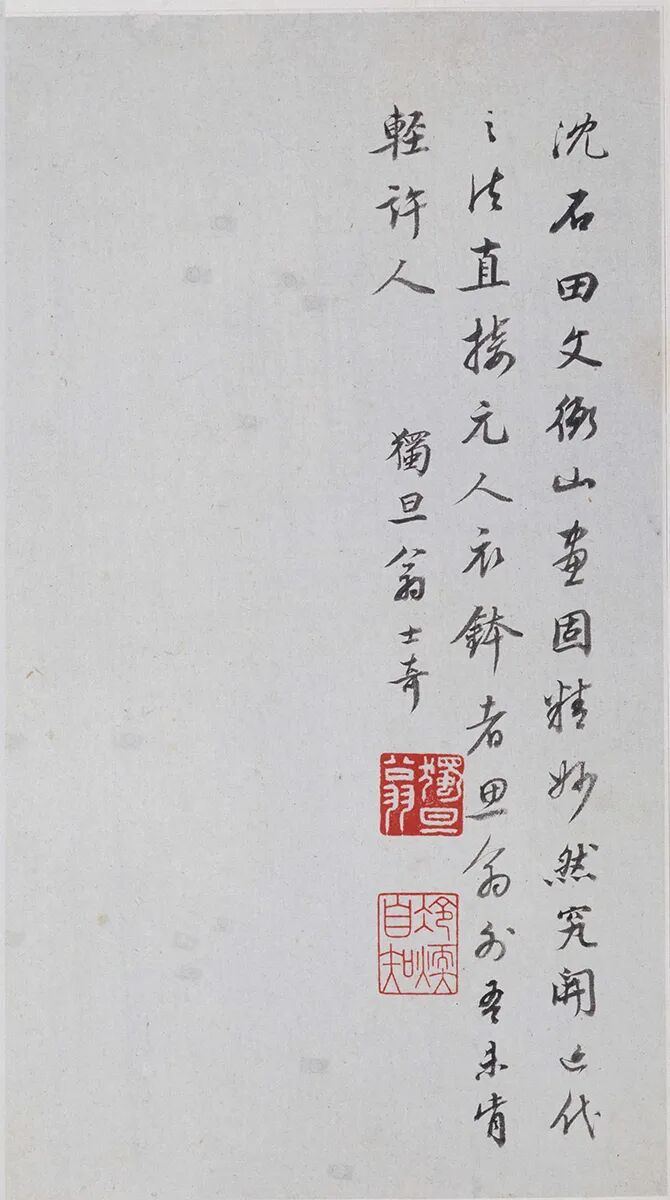 沈石田文衡山畫固精妙然究開近代
之法直接元人衣鉢者思翁外吾未肯
輕許人
獨旦翁士奇
獨旦翁
冷暖自知